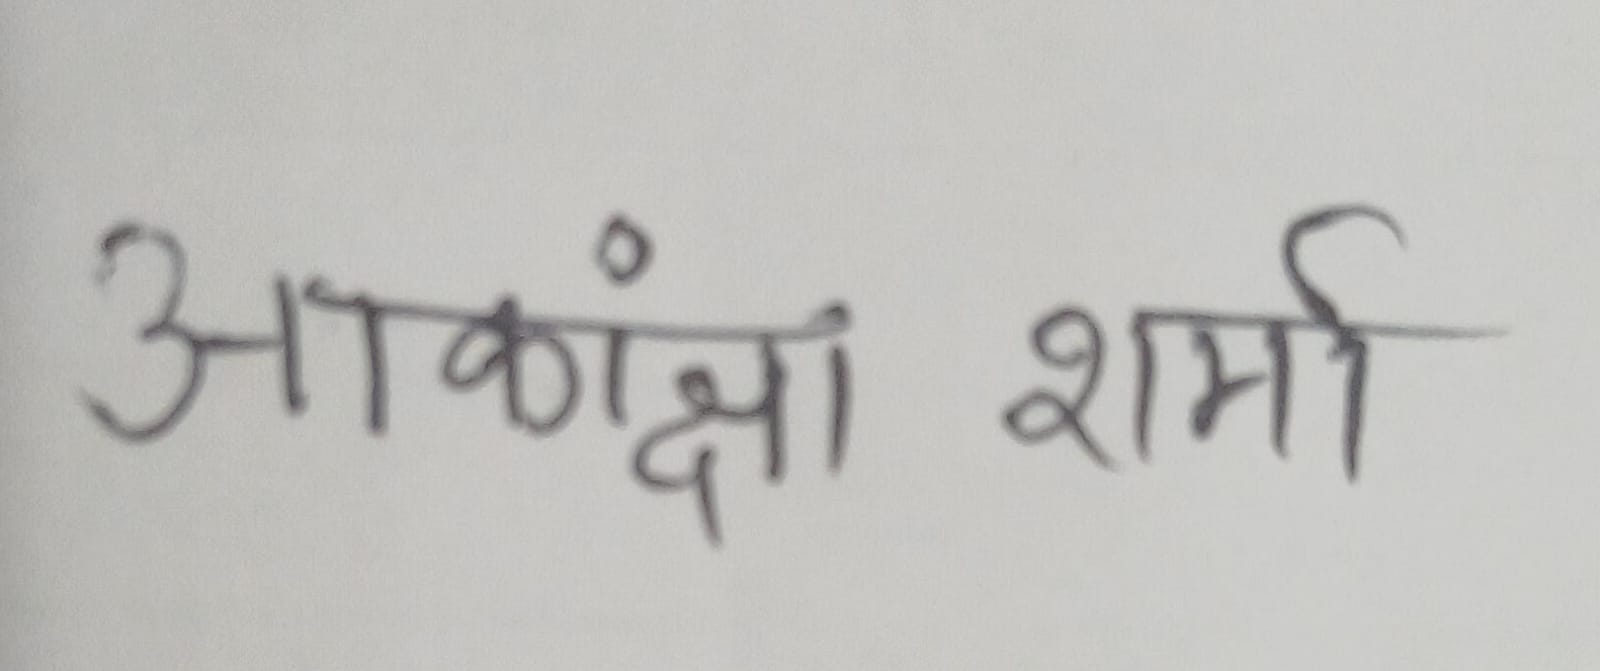 आकांक्षा शर्मा